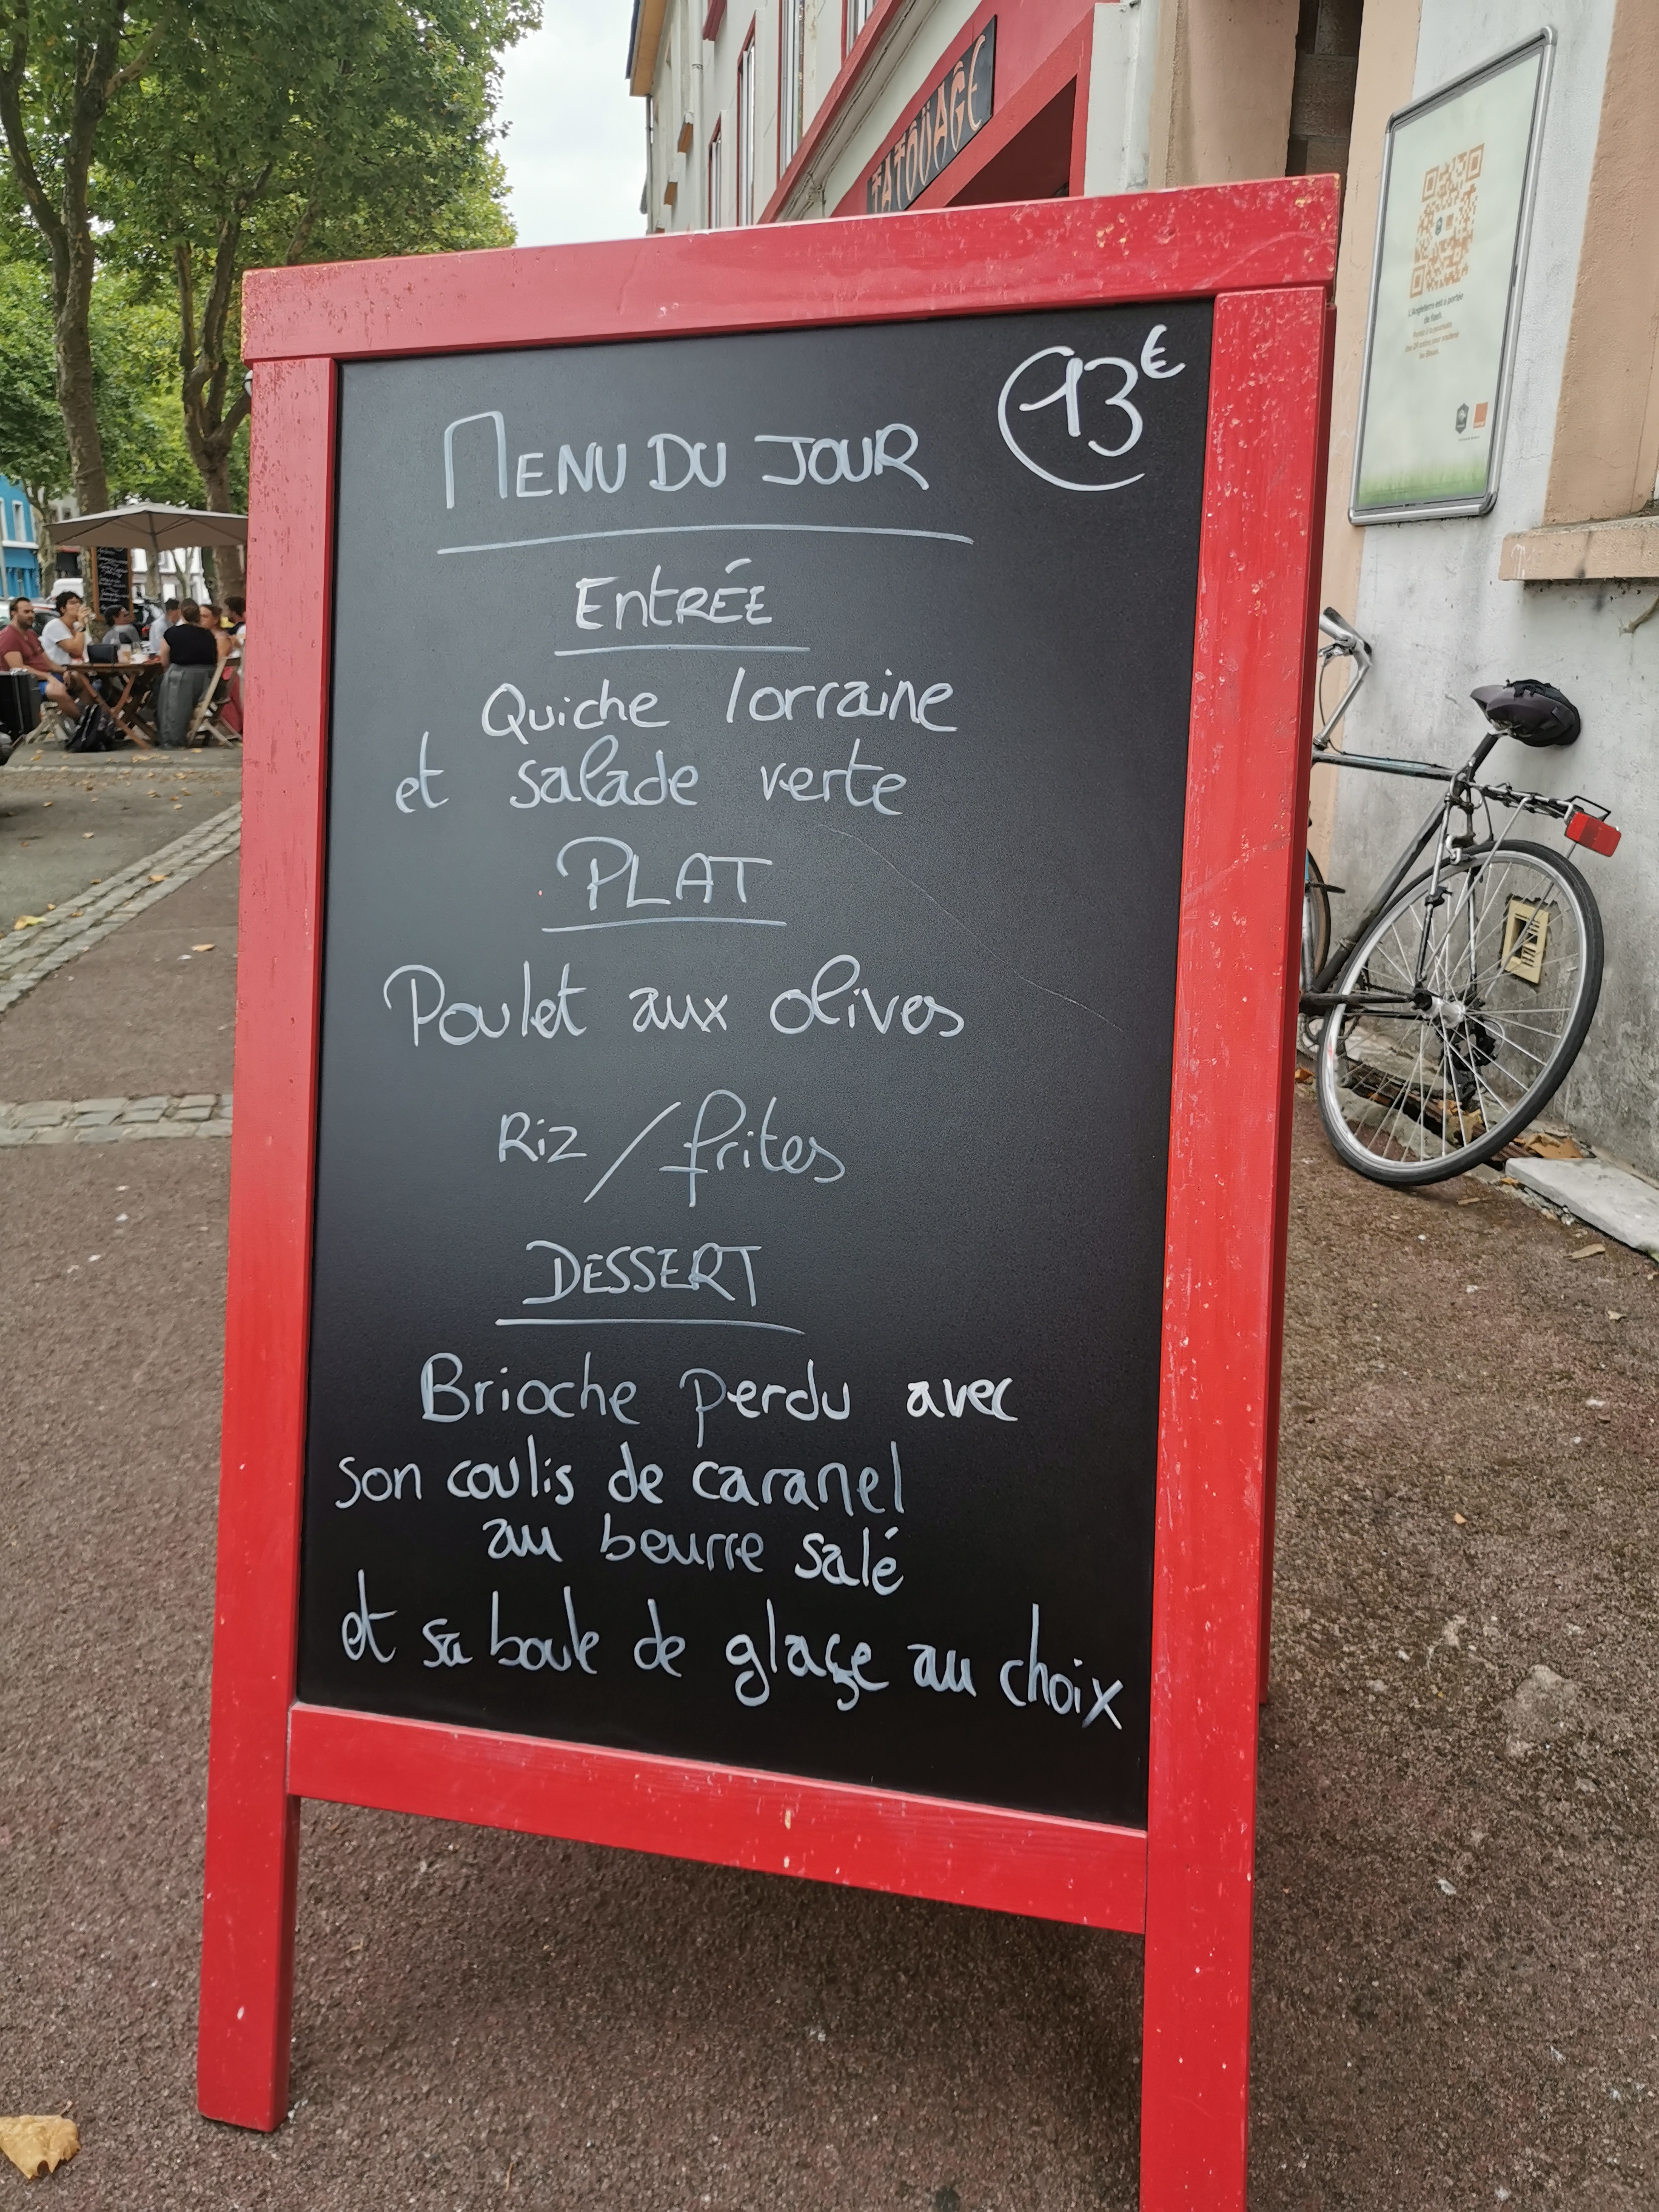 TATOUAGE
13€
MENU DU JOUR
ENTRÉE
Quiche lorraine
et salade verte
PLAT
Poulet aux olives
Riz / frites
DESSERT
Brioche perdu avec
son coulis de caramel
au beurre salé
et sa boule de glaçe au choix